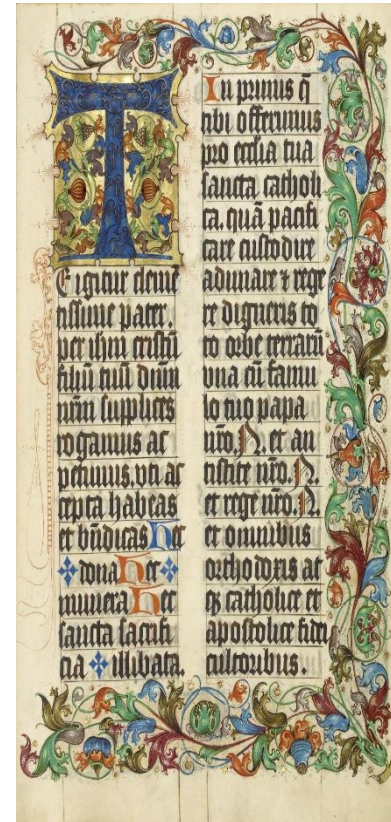 T
E igitur cleme
tissime pater.
per ihm cristū
filiū tuū dnm
nrm supplices
rogamus ac
petimus. vti ac
cepta habeas
et bndicas hec
✥ dona hec ✥
munera hec
sancta sacrifi
cia ✥ illibata.
In primis q̄
tibi offerimus
pro ecclia tua
sancta catholi
ca. quā pacifi
care custodire
adunare ⁊ rege
re digneris to
to orbe terrarū
vna cū famu
lo tuo papa
nro. N. et an
tistite nro. N.
et rege nro. N.
et omnibus
orthodoxis at
q̄ catholice et
apostolice fidei
cultoribus.